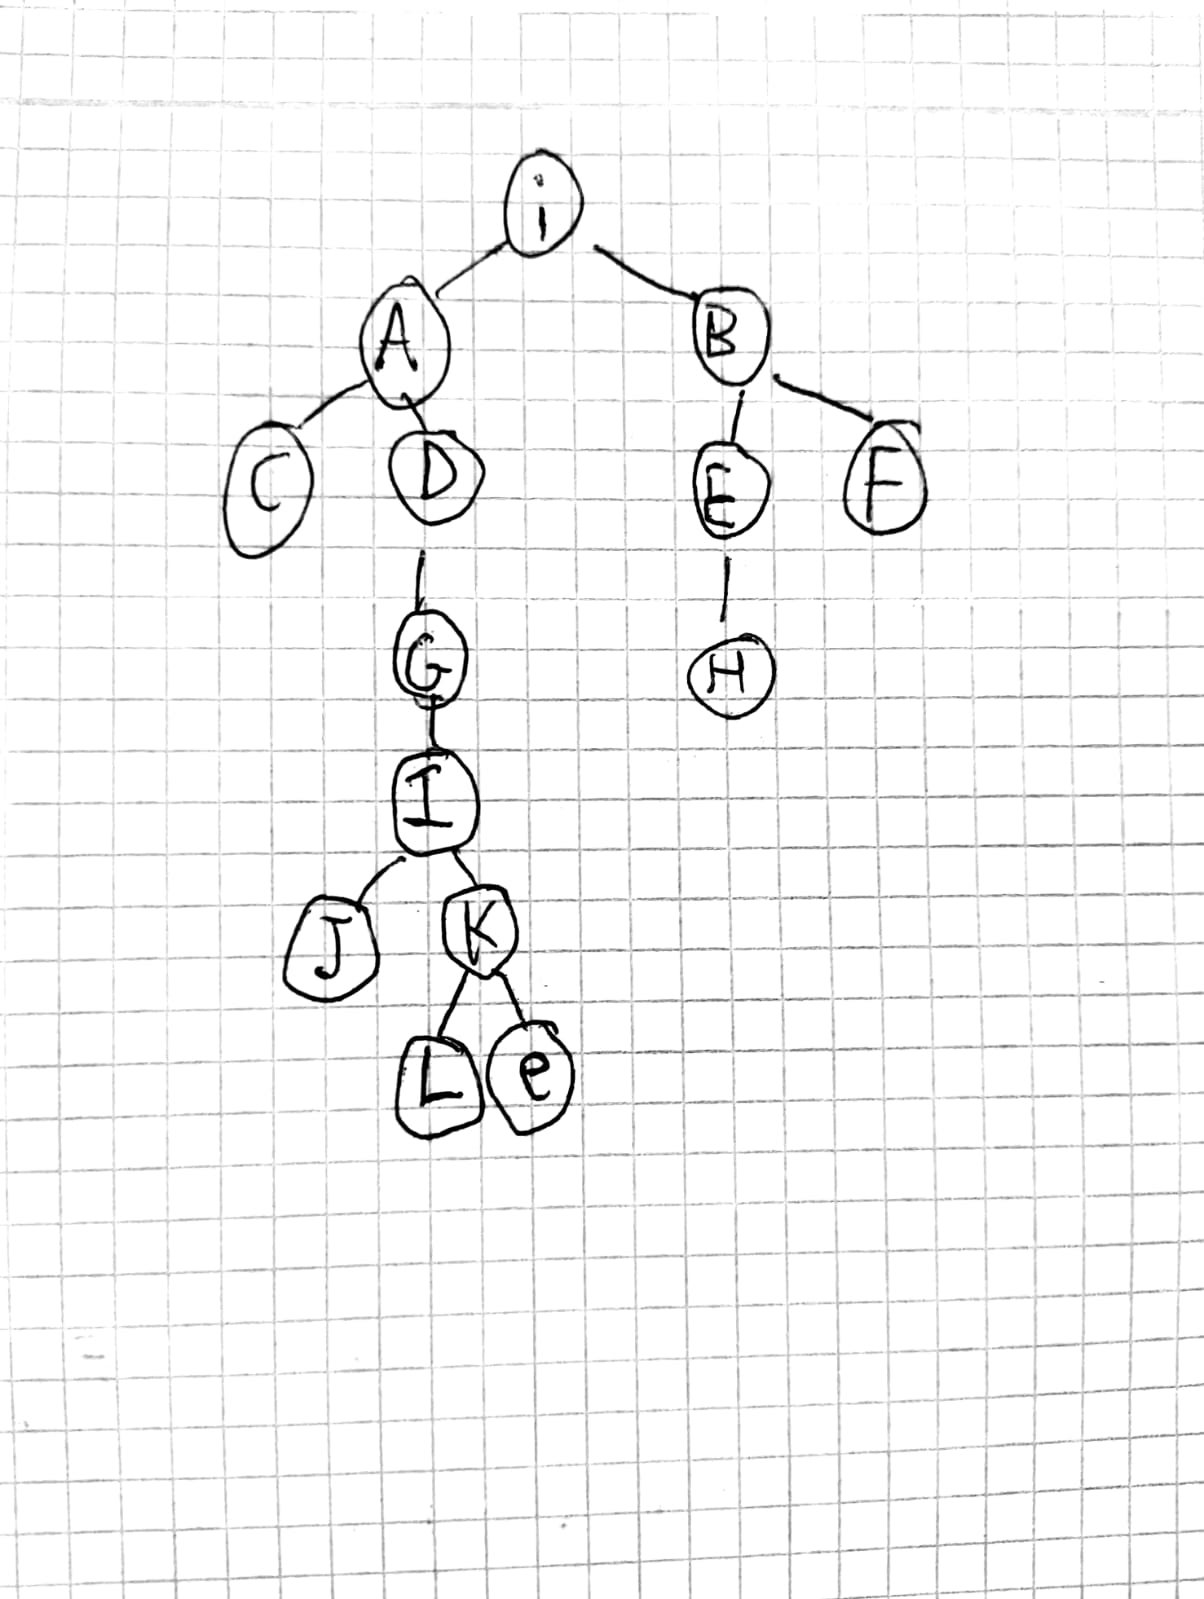 i
A B
C D E F
G H
I
J K
L e